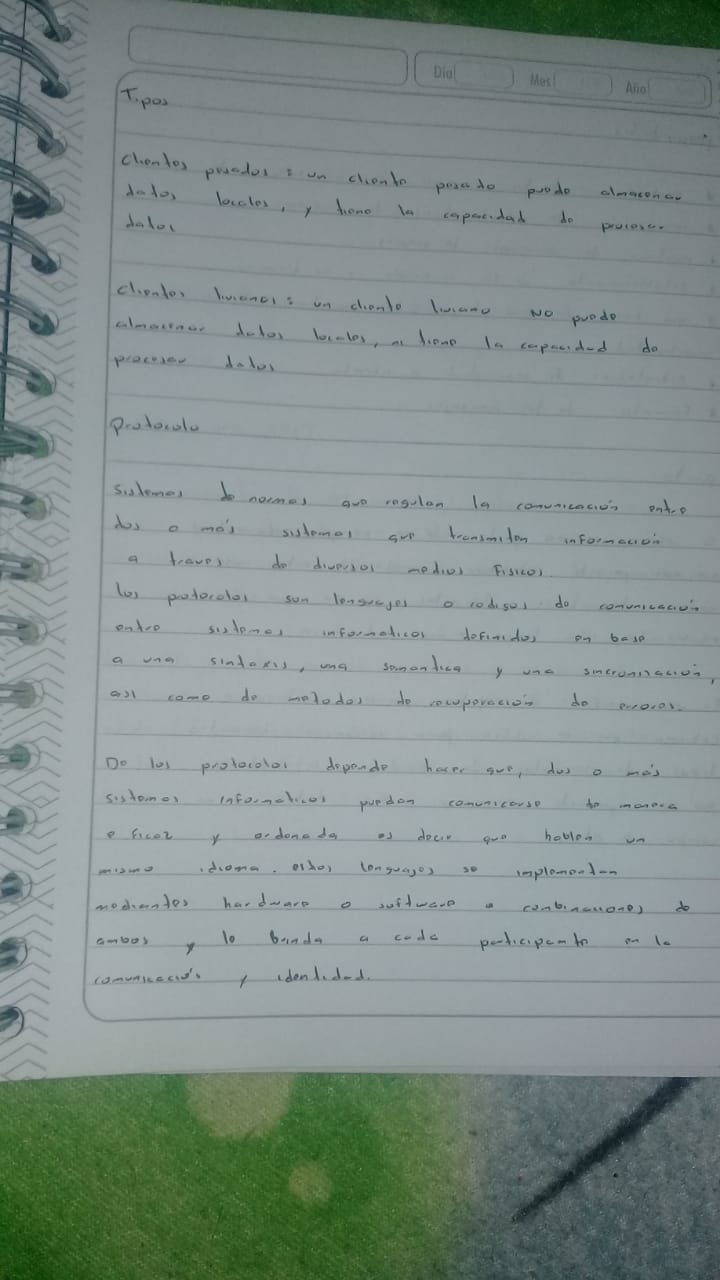 Día Mes Año
Tipos
clientes pesados : un cliente pesado puede almacenar
datos locales, y tiene la capacidad de procesar
datos
clientes livianos : un cliente liviano NO puede
almacenar datos locales, ni tiene la capacidad de
procesar datos
Protocolo
sistemas de normas que regulan la comunicación entre
dos o más sistemas que transmiten información
a traves de diversos medios Fisicos.
los protocolos son lenguajes o codigos de comunicación
entre sistemas informaticos definidos en base
a una sintaxis, una semantica y una sincronización,
asi como de metodos de recuperación de errores.
De los protocolos depende hacer que, dos o más
sistemas informaticos puedan comunicarse de manera
eficaz y ordenada es decir que hablen un
mismo idioma. estos lenguajes se implementan
mediantes hardware o software o combinaciones de
ambos y le brinda a cada participante en la
comunicación y identidad.